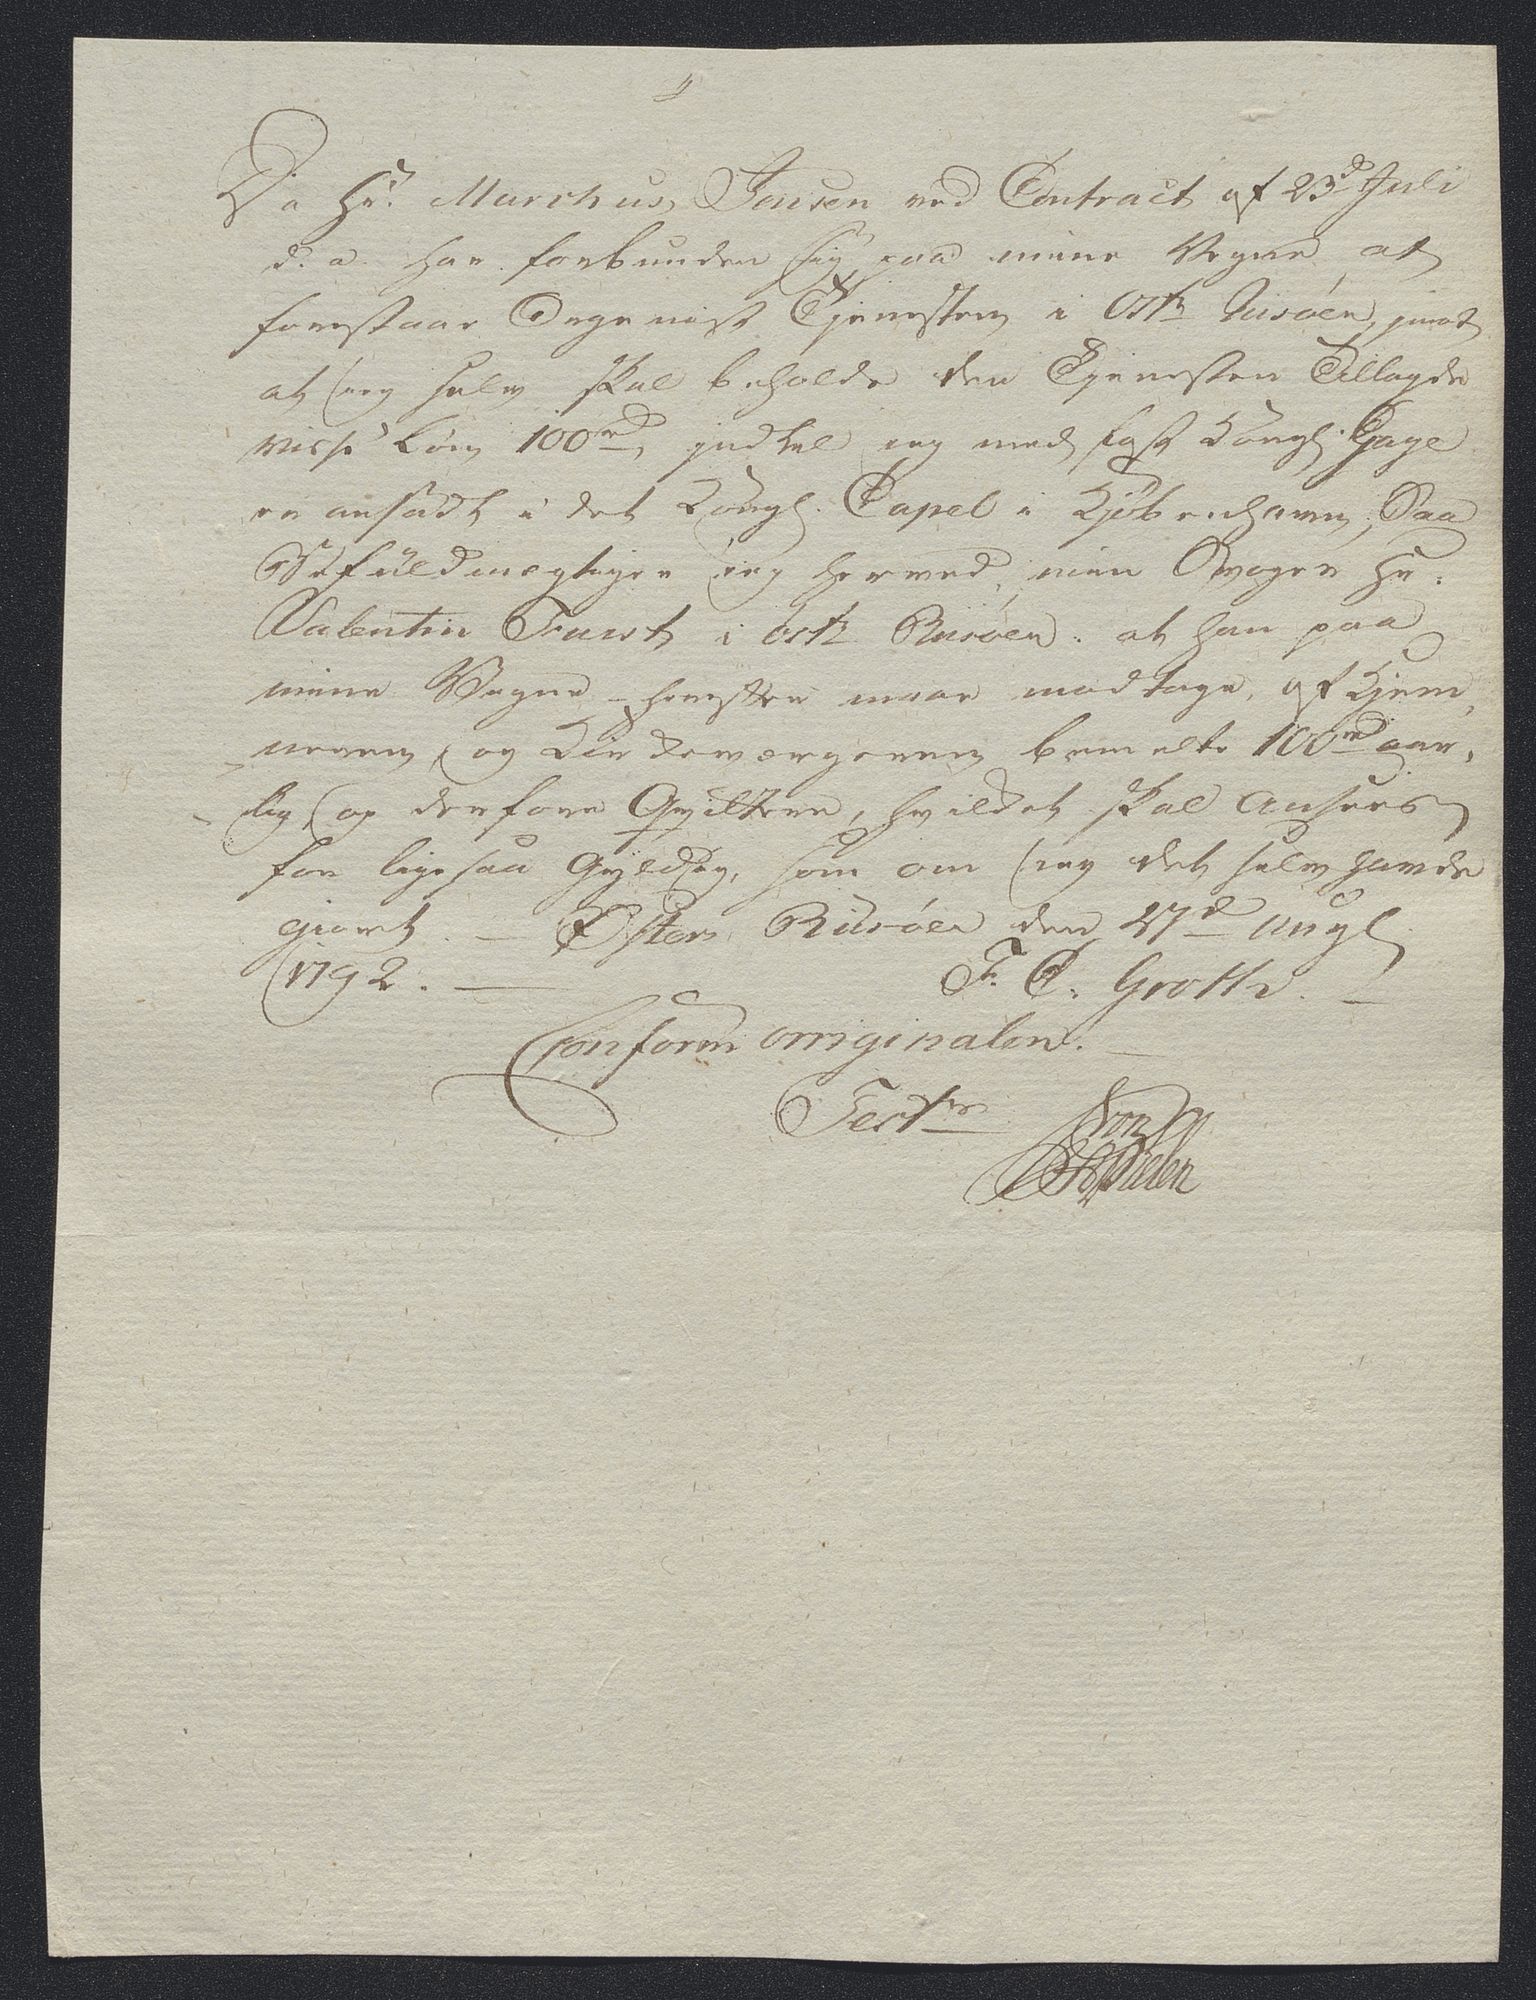 Da Hr. Marchus Jensen ved Contract af 23d Juli
d. a. har forbunden sig paa mine Vegne at
forestaar Organist Tjenesten i Ostr Riisöer, imod
at ieg selv skal beholde den Tjenesten Tillagde
visse Løn 100rd, indtil ieg med fast Kongl. Gage
er ansadt i det Kongl. Capel i Kjøbenhavn; Saa
Befuldmægtiger ieg herved, min Svoger Hr.
Valentin Faust i Östr Riisöer. at han paa
mine Vegne maae modtage, af Kjem¬
neren og Kirkeværgeren bemelte 100rd aar¬
lig, og derfore Qvittere, hvilket skal ansees
for ligesaa Gyldig, som om ieg det selv havde
giort. — Øster Riisöer den 27d Augl
1792. — F. C. Groth. —
Conform originalen. —
Test